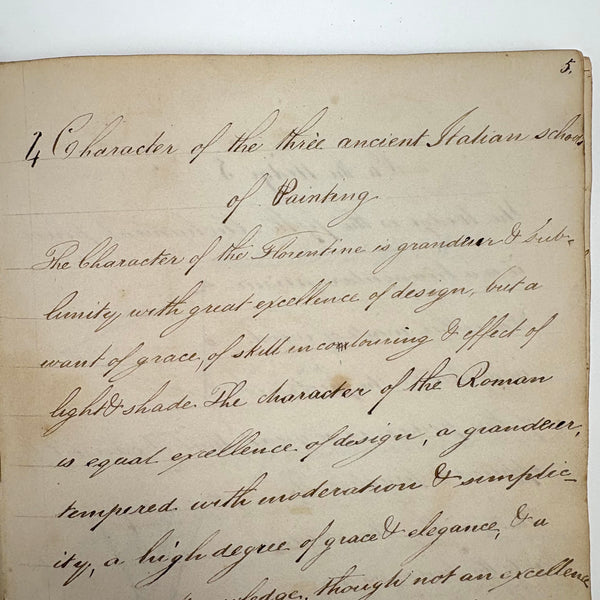 5.
4 Character of the three ancient Italian schools
of Painting
The Character of the Florentine is grandeur & sub-
limity, with great excellence of design, but a
want of grace, of skill in colouring & effect of
light & shade. The character of the Roman
is equal excellence of design, a grandeur,
tempered with moderation & simplic-
ity, a high degree of grace & elegance, & a
knowledge, though not an excellence